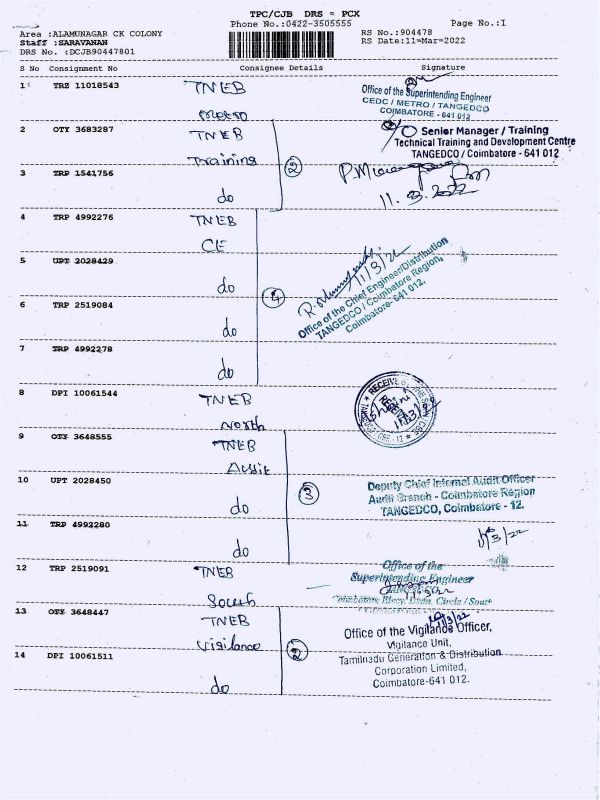 TPC/CJB DRS = PCX
Phone No.:0422-3505555
Page No.:1
Area :ALAMUNAGAR CK COLONY
RS No.:904478
Staff :SARAVANAN
RS Date:11=Mar=2022
DRS No. :DCJB90447801
S No Consignment No Consignee Details Signature
1 TRZ 11018543 TNEB
Metro
Office of the Superintending Engineer
CEDC / METRO / TANGEDCO
COIMBATORE - 641 012
2 OTY 3683287 TNEB
Training
Senior Manager / Training
Technical Training and Development Centre
TANGEDCO / Coimbatore - 641 012
3 TRP 1541756 do
2
11.3.2022
4 TRP 4992276 TNEB
CE
5 UPT 2028429 do
6 TRP 2519084 do
7 TRP 4992278 do
4
11/3/22
Office of the Chief Engineer/Distribution
TANGEDCO / Coimbatore Region,
Coimbatore-641 012.
8 DPI 10061544 TNEB
North
RECEIVED
11/3/22
9 OTY 3648555 TNEB
Audit
10 UPT 2028450 do
11 TRP 4992280 do
3
Deputy Chief Internal Audit Officer
Audit Branch - Coimbatore Region
TANGEDCO, Coimbatore - 12.
11/3/22
12 TRP 2519091 TNEB
South
Office of the
Superintending Engineer
TANGEDCO
Coimbatore Elecy. Distn. Circle / South
13 OTY 3648447 TNEB
Vigilance
14 DPI 10061511 do
2
11/3/22
Office of the Vigilance Officer,
Vigilance Unit,
Tamilnadu Generation & Distribution
Corporation Limited,
Coimbatore-641 012.